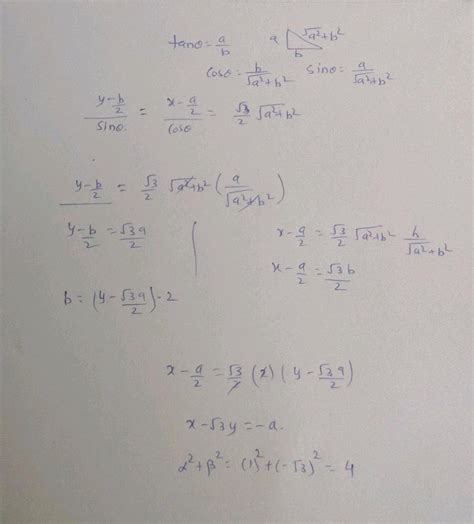 tanθ = a/b   a √a²+b² b
cosθ = b/√a²+b²   sinθ = a/√a²+b²
(y-b/2)/sinθ. = (x-a/2)/cosθ = √3/2 √a²+b²
y-b/2 = √3/2 √a²+b² (a/√a²+b²)
y-b/2 = √3a/2
x-a/2 = √3/2 √a²+b² b/√a²+b²
x-a/2 = √3b/2
b = (y-√3a/2)·2
x-a/2 = √3/2 (2) (y-√3a/2)
x-√3y = -a.
α²+β² = (1)²+(-√3)² = 4